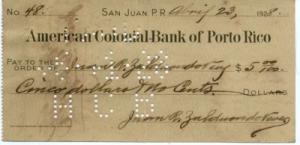 No. 48. SAN JUAN P.R. April 23, 1928.
American Colonial Bank of Porto Rico
PAY TO THE ORDER OF Juan R. Zalduondo $ 5 00/100
Cinco dollars & No Cents. DOLLARS
Juan R. Zalduondo